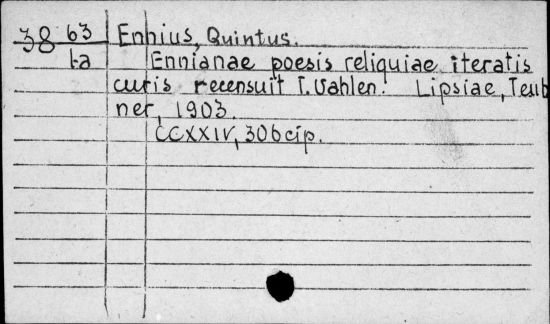 38 63 Ennius, Quintus.
La Ennianae poesis reliquiae iteratis
curis recensuit I. Vahlen. Lipsiae, Teub
ner, 1903.
CCXXIV, 306 cip.